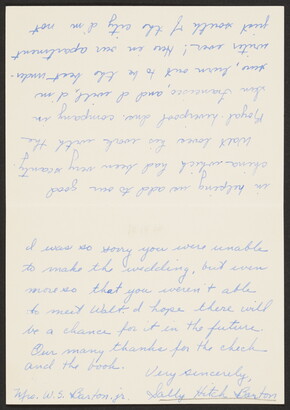 in helping us add to our good
china which had been very scanty.
Walt loves his work with the
Royal Liverpool Ins. company in
San Francisco, and I will, I'm
sure, turn out to be the best under-
writer ever! in our apartment
just south of the city I'm not
I was so sorry you were unable
to make the wedding, but even
more so that you weren't able
to meet Walt. I hope there will
be a chance for it in the future.
Our many thanks for the check
and the book.
Very sincerely,
Sally Hitch
Mrs. W.S. jr.